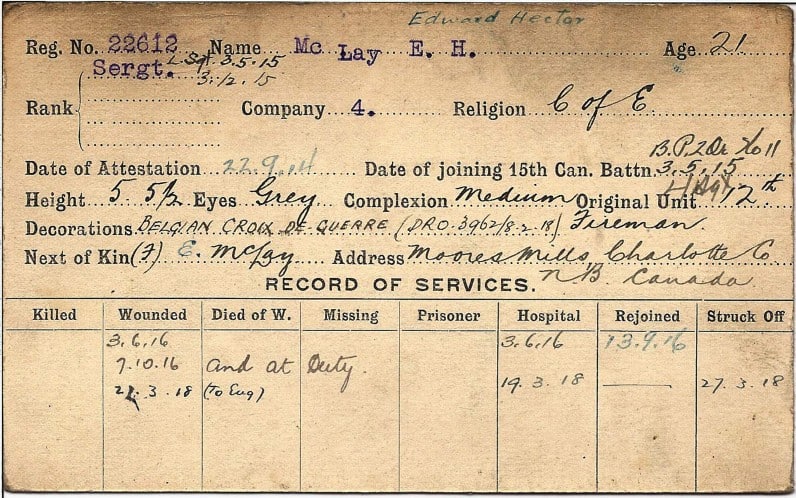 Edward Hector
Reg. No. 22612 Name Mc Lay E. H. Age 21
Sergt. L Sgt. 3.5.15
3.12.15
Rank Company 4. Religion C of E
B.P.2Dr
Date of Attestation 22.9.14 Date of joining 15th Can. Battn. 3.5.15
Height 5 5½ Eyes Grey Complexion Medium Original Unit 12th
Decorations BELGIAN CROIX DE GUERRE (DRO. 3962/8.2.18) Fireman.
Next of Kin (F) E. McLay Address Moores Mills, Charlotte Co
N.B. Canada
RECORD OF SERVICES.
Killed Wounded Died of W. Missing Prisoner Hospital Rejoined Struck Off
3.6.16 3.6.16 13.9.16
7.10.16 and at Duty.
3.18 (To Eng) 19.3.18 27.3.18